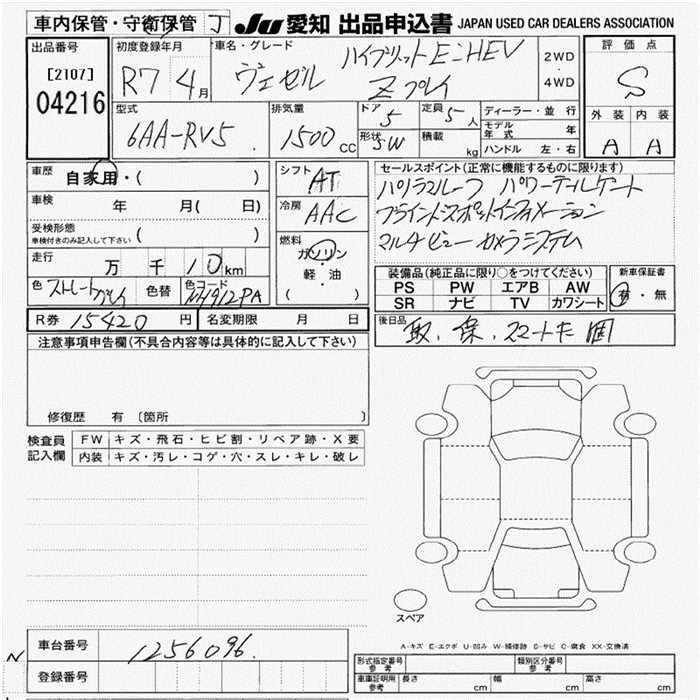 車内保管・守衛保管 J JU 愛知 出品申込書 JAPAN USED CAR DEALERS ASSOCIATION
出品番号 初度登録年月 車名・グレード ハイブリットE:HEV 2WD 評価点
[2107] R7 4月 ヴェゼル Zプレイ 4WD S
04216
型式 排気量 ドア 5 定員 5人 ディーラー・並行 外装 内装
6AA-RV5 1500cc 形状 5W 積載 kg モデル年式 年 A A
ハンドル 左・右
車歴 自家用・( ) シフト AT セールスポイント(正常に機能するものに限ります)
車検 年 月( 日) 冷房 AAC パノラマルーフ パワーテールゲート
受検形態 車検付きのみ記入して下さい ( ) 燃料 ガソリン・軽・油 ( ) ブラインドスポットインフォメーション
走行 万 千 10km マルチビューカメラシステム
色 ストレートグレイ 色替 色コード NH912PA
装備品(純正品に限り○をつけてください) 新車保証書
PS PW エアB AW 有・無
SR ナビ TV カワシート
R券 15420円 名変期限 月 日 後日品 取、保、スマートキー1個
注意事項申告欄(不具合内容等は具体的に記入して下さい)
修復歴 有 〔箇所 〕
検査員記入欄 FW キズ・飛石・ヒビ割・リペア跡・X要
内装 キズ・汚レ・コゲ・穴・スレ・キレ・破レ
スペア
A-キズ E-エクボ U-凹み W-補修跡 S-サビ C-腐食 XX-交換済
車台番号 1256096
N 登録番号
形式指定番号 参考 類別区分番号 参考
車庫証明用 参考 長さ cm 幅 cm 高さ cm